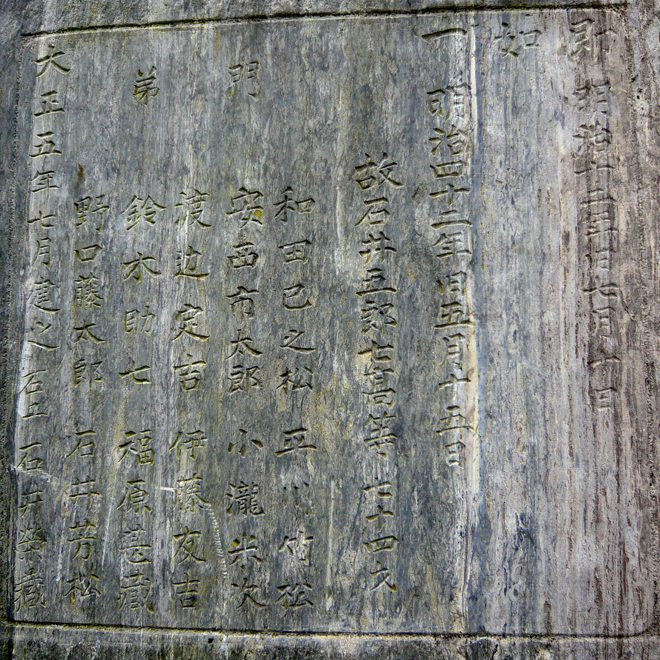 明治廿二年旧七月十日
如
一 明治四十二年旧五月十五日
故石井五郎七高等 七十四才
和田巳之松 平川竹松
門 安西市太郎 小瀧米次
渡辺定吉 伊藤友吉
弟 鈴木助七 福原喜藏
野口藤太郎 石井芳松
大正五年七月建之 石工 石井藏